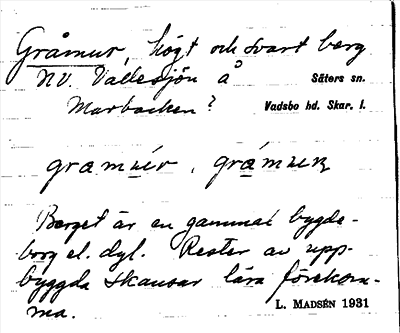 Gråmur, högt och svart berg
NV. Vallesjön å Säters sn.
Marbacken? Vadsbo hd. Skar. l.
Berget är en gammal bygde-
borg el. dyl. Rester av upp-
byggda skansar lära förekom-
ma. L. MADSÉN 1931